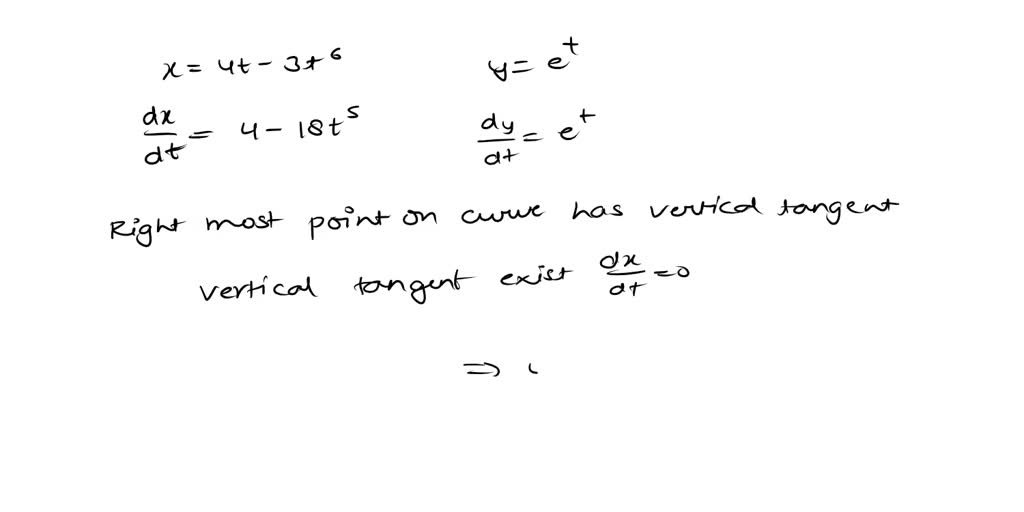 x = 4t - 3t⁶ y = eᵗ
dx/dt = 4 - 18t⁵ dy/dt = eᵗ
Right most point on curve has vertical tangent
vertical tangent exist dx/dt = 0
⇒